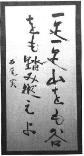 一足一足山をも谷
をも踏み越えよ